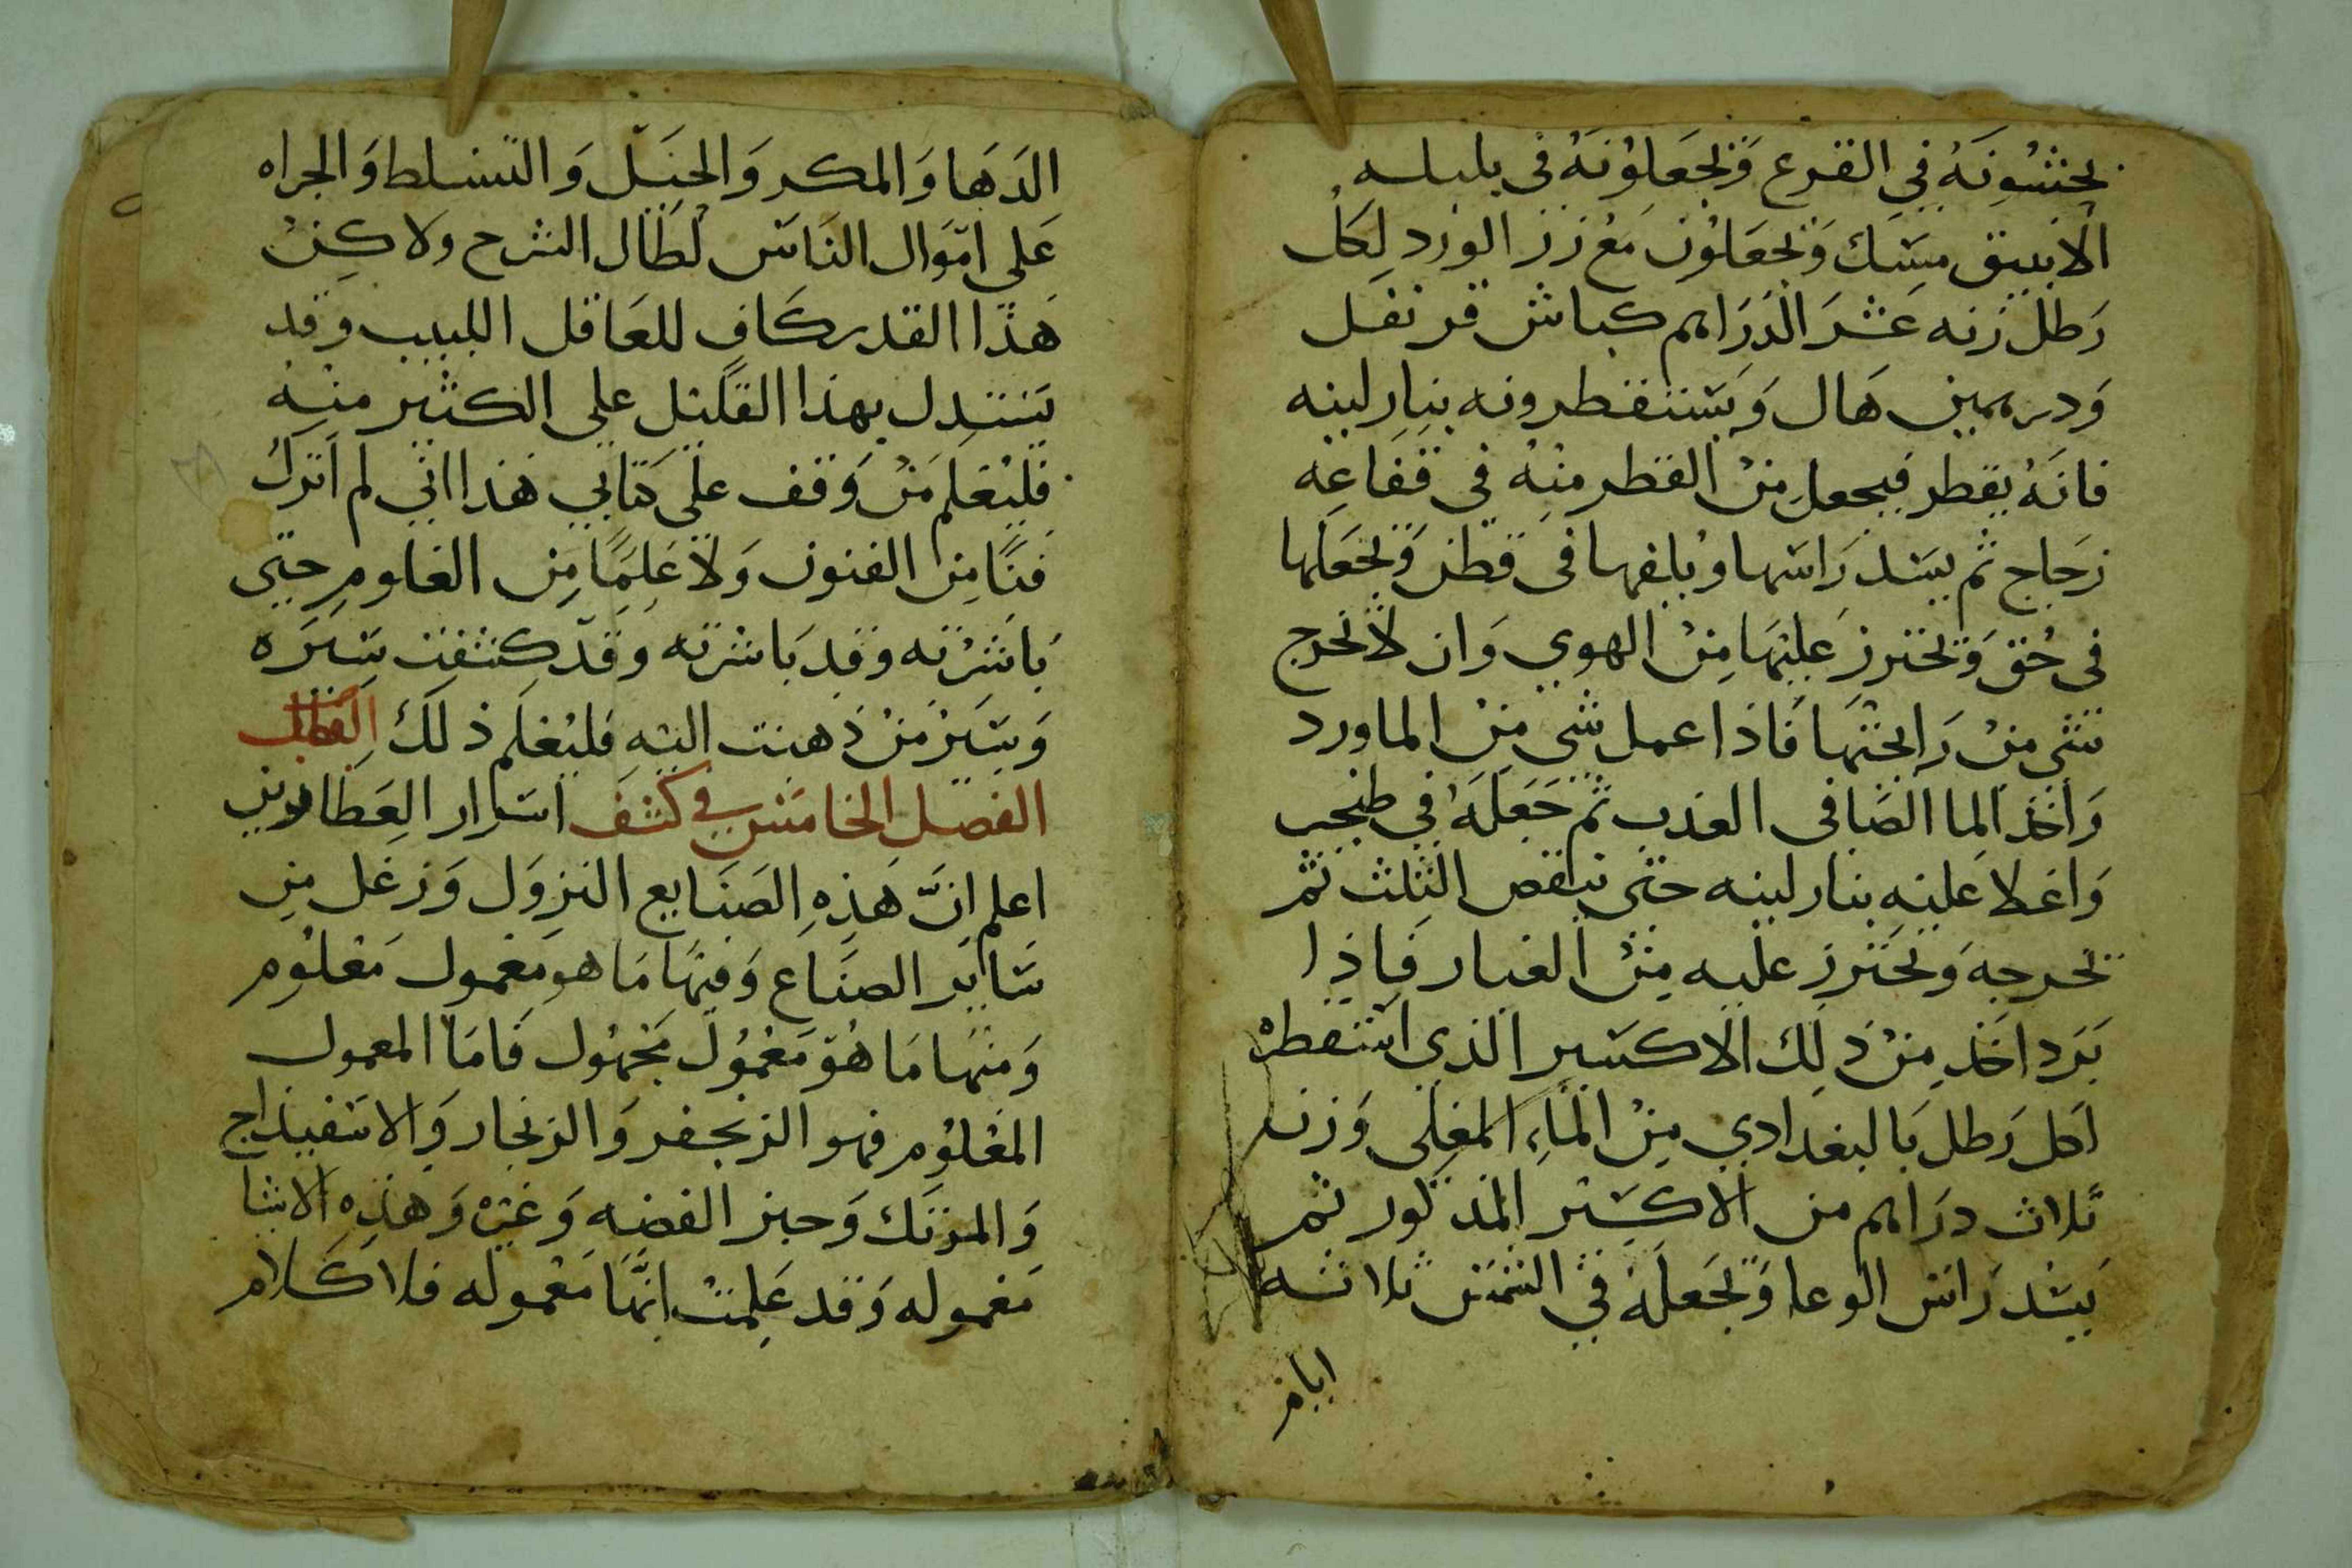 يحشونه في القرع ويجعلونه في بلبله
الانبيق مسك ويجعلون مع زر الورد لكل
رطل زنه عشر الدراهم كباش قرنفل
ودرهمين هال ويستقطرونه بنار لينه
فانه يقطر فيجعل من القطر منه في فقاعه
زجاج ثم يسد راسها ويلفها في قطن ويجعلها
في حق ويحترز عليها من الهوي وان لا تخرج
شي من رايحتها فاذا عمل شي من الماورد
واخذ الما الصافي العذب ثم جعله في طنجير
واغلا عليه بنار لينه حتى يناقص الثلث ثم
يخرجه ويحترز عليه من الغبار فاذا
برد اخذ من ذلك الاكسير الذي استقطره
لكل رطل بالبغدادي من الماء المغلي وزنه
ثلاث دراهم من الاكسير المذكور ثم
يسد راس الوعا ويجعله في الشمس ثلاثه
ايام
الدها والمكر والحيل والتسلط والجراه
على اموال الناس لطال الشرح ولاكن
هذا القدر كاف للعاقل اللبيب وقد
يستدل بهذا القليل على الكثير منه
فليعلم من وقف على كتابي هذا اني لم اترك
فنا من الفنون ولا علما من العلوم حتى
باشرته وقد باشرته وقد كشفت سره
وسر من ذهبت اليه فليعلم ذلك
الفصل الخامس في كشف اسرار العطارين
اعلم ان هذه الصنايع النزول وزغل من
ساير الصناع وفيها ما هو معمول معلوم
ومنها ما هو معمول مجهول فاما المعمول
المعلوم فهو الزنجفر والزنجار والاسفيداج
والمرتك وحبز الفضه وغيره وهذه الاشيا
معموله وقد علمت انها معموله فلا كلام